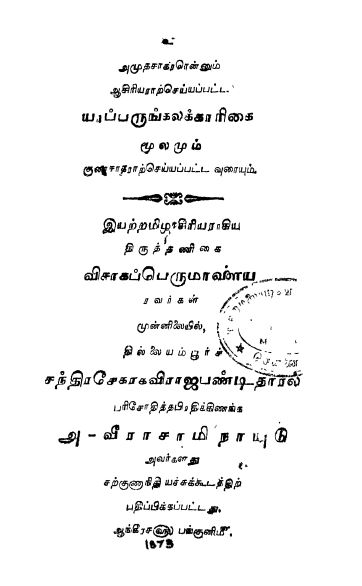 உ
அமுதசாகரரென்னும்
ஆசிரியராற்செய்யப்பட்ட
யாப்பருங்கலக்காரிகை
மூலமும்
குணசாகரராற்செய்யப்பட்ட வுரையும்.
இயற்றமிழாசிரியராகிய
திருத்தணிகை
விசாகப்பெருமாளைய
ரவர்கள்
முன்னிலையில்,
தில்லையம்பூர்ச்
சந்திரசேகரகவிராஜபண்டிதரால்
பரிசோதித்தபிரதிக்கிணங்க
அ - வீராசாமிநாயுடு
அவர்களது
சற்குணநிதியச்சுக்கூடத்திற்
பதிப்பிக்கப்பட்டது.
ஆங்கீரச௵ பங்குனிமீ
1873